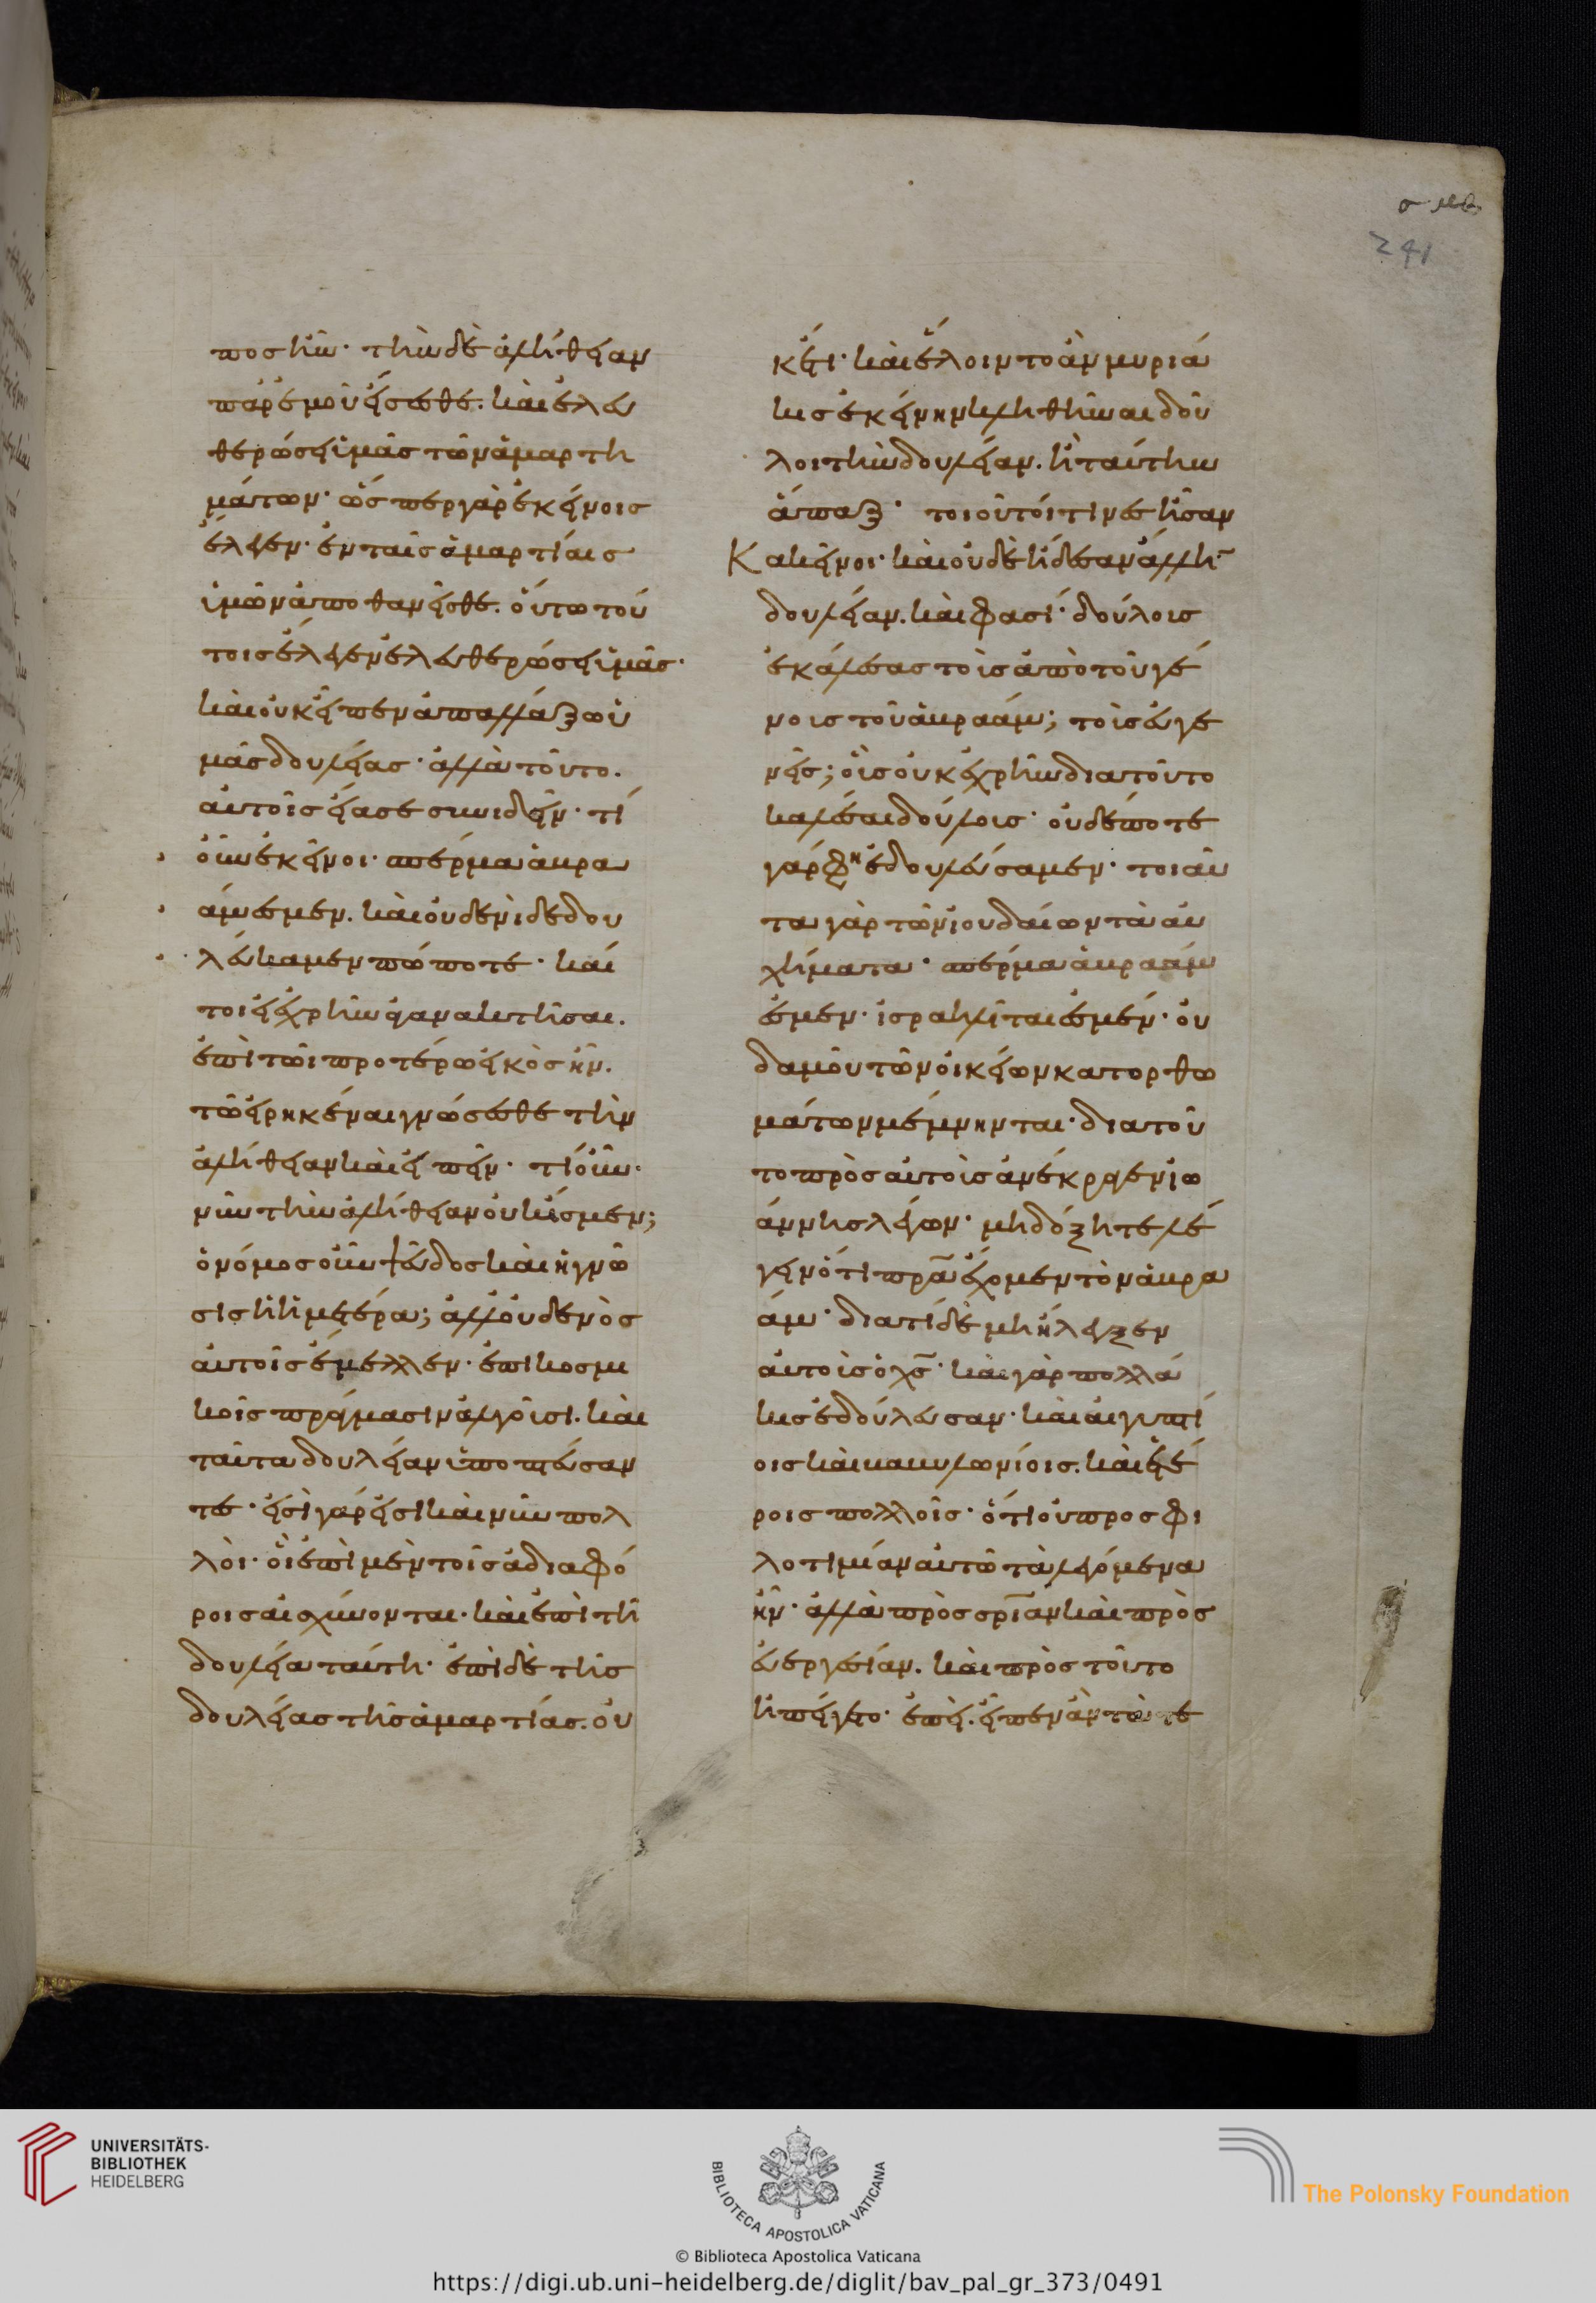 σμβ
241
ποσ ἦν· τὴν δὲ ἀλήθειαν
παρ' ἐμοῦ εἴσεσθε. καὶ ἐλευ
θερώσει ὑμᾶσ τῶν ἁμαρτη
μάτων· ὥσπερ γὰρ ἐκείνοισ
ἔλεγεν· ἐν ταῖσ ἁμαρτίαισ
ὑμῶν ἀποθανεῖσθε. οὕτω τού
τοισ ἔλεγεν ἐλευθερώσει ὑμᾶσ·
καὶ οὐκ εἶπεν ἀπαλλάξω ὑ
μᾶσ δουλείασ· ἀλλὰ τοῦτο.
αὐτοῖσ εἴασε συνιδεῖν· τί
οὖν ἐκεῖνοι· σπέρμα ἀβρα
άμ ἐσμεν. καὶ οὐδενὶ δεδου
λεύκαμεν πώποτε· καί
τοι εἰ ἐχρῆν ἀγανακτῆσαι.
ἐπὶ τῶι προτέρω εἰκὸσ ἦν.
τῶ εἰρηκέναι γνώσεσθε τὴν
ἀλήθειαν καὶ εἰπεῖν· τί οὖν·
νῦν τὴν ἀλήθειαν οὐκ ἴσμεν;
ὁ νόμοσ οὖν ψεῦδοσ καὶ ἡ γνῶ
σισ ἡ ἡμετέρα; ἀλλ' οὐδενὸσ
αὐτοῖσ ἔμελλεν· ἐπὶ κοσμι
κοῖσ πράγμασιν ἀλγοῦσι. καὶ
ταῦτα δουλείαν ὑποπτεύσαν
τεσ· εἰσὶ γάρ εἰσι καὶ νῦν πολ
λοὶ· οἳ ἐπὶ μὲν τοῖσ ἀδιαφό
ροισ αἰσχύνονται· καὶ ἐπὶ τῆ
δουλεία ταύτη· ἐπὶ δὲ τῆσ
δουλείασ τῆσ ἁμαρτίασ. οὐ
κέτι· καὶ ἕλοιντο ἂν μυριά
κισ ἐκείνην κληθῆναι δοῦ
λοι τὴν δουλείαν. ἢ ταύτην
ἅπαξ· τοιοῦτοί τινεσ ἦσαν
Κακεῖνοι· καὶ οὐδὲ ἤδεσαν ἄλλην
δουλείαν. καὶ φασί· δούλοισ
ἐκάλεσασ τοὺσ ἀπὸ τοῦ γέ
νουσ τοῦ ἀβραάμ; τοὺσ εὐγε
νεῖσ; οὓσ οὐκ ἐχρῆν διατοῦτο
καλέσαι δούλουσ· οὐδέποτε
γάρ φησιν ἐδουλεύσαμεν· τοιαῦ
τα γὰρ τῶν ἰουδαίων τὰ αὐ
χήματα· σπέρμα ἀβραάμ
ἐσμεν· ἰσραηλῖται ἐσμέν· οὐ
δαμοῦ τῶν οἰκείων κατορθω
μάτων μέμνηνται· διατοῦ
το πρὸσ αὐτοὺσ ἀνέκραγεν ἰω
άννησ λέγων· μὴ δόξητε λέ
γειν ὅτι πρα ἔχομεν τὸν ἀβρα
άμ· διατί δὲ μὴ ἤλεγξεν
αὐτοὺσ ὁ χσ· καὶ γὰρ πολλά
κισ ἐδούλευσαν· καὶ αἰγυπτί
οισ καὶ βαβυλωνίοισ. καὶ ἑτέ
ροισ πολλοῖσ· ὅτι οὐ προσ φι
λοτιμίαν αὐτῶ τὰ λεγόμενα
ἦν· ἀλλὰ πρὸσ σριαν καὶ πρὸσ
εὐεργεσίαν. καὶ πρὸσ τοῦτο
ἠπείγετο· ἐπεὶ. εἶπεν ἂν τὰ τε
UNIVERSITÄTS-
BIBLIOTHEK
HEIDELBERG
BIBLIOTECA APOSTOLICA VATICANA
The Polonsky Foundation
© Biblioteca Apostolica Vaticana
https://digi.ub.uni-heidelberg.de/diglit/bav_pal_gr_373/0491